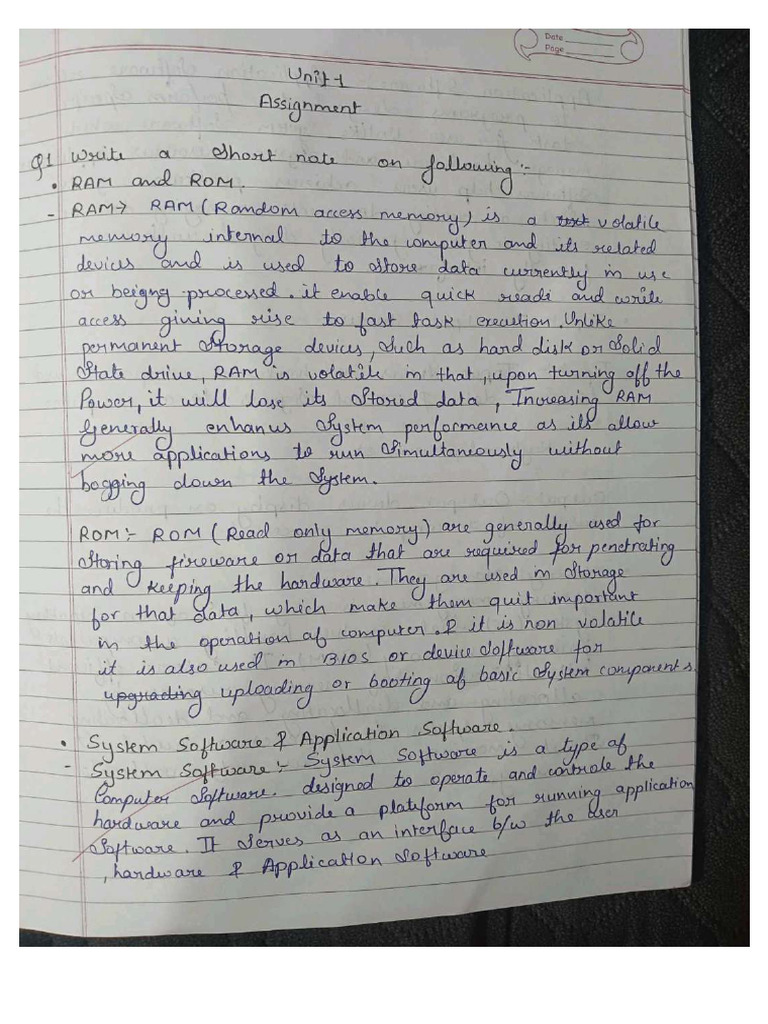 Date
Page
Unit-1
Assignment
Q1 Write a short note on following :-
• RAM and ROM.
- RAM → RAM (Random access memory) is a volatile
memory internal to the computer and its related
devices and is used to store data currently in use
or beigng processed. it enable quick readi and write
access giving rise to fast task execution. Unlike
permanent storage devices, such as hard disk or Solid
State drive, RAM is volatile in that, upon turning off the
Power, it will lose its stored data, Increasing RAM
Generally enhanus system performance as its allow
more applications to run simultaneously without
bogging down the system.
ROM :- ROM (Read only memory) are generally used for
storing fireware or data that are required for penetrating
and keeping the hardware. They are used in storage
for that data, which make them quit important
in the operation of computer. & it is non volatile
it is also used in BIOS or device software for
upgrading uploading or booting of basic system components.
• System Software & Application Software.
- System Software :- System software is a type of
Computer software. designed to operate and controle the
hardware and provide a platform for running application
software. It serves as an interface b/w the user
, hardware & Application software